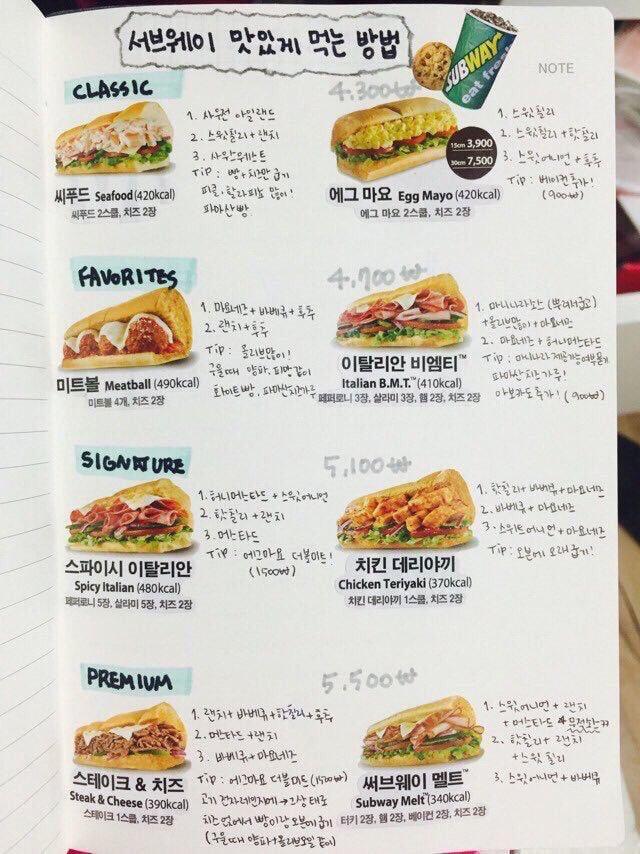 서브웨이 맛있게 먹는 방법
SUBWAY
eat fresh
NOTE
CLASSIC
4.300₩
씨푸드 Seafood (420kcal)
씨푸드 2스쿱, 치즈 2장
1. 사우전 아일랜드
2. 스윗칠리 + 랜치
3. 사우스웨스트
TIP : 빵+치즈만 굽기
피클, 할라피뇨 많이!
파마산 빵
15cm 3,900
30cm 7,500
에그 마요 Egg Mayo (420kcal)
에그 마요 2스쿱, 치즈 2장
1. 스윗칠리
2. 스윗칠리 + 핫칠리
3. 스윗어니언 + 후추
TIP : 베이컨 추가!
(900₩)
FAVORITES
4.700₩
미트볼 Meatball (490kcal)
미트볼 4개, 치즈 2장
1. 마요네즈 + 바베큐 + 후추
2. 랜치 + 후추
TIP : 올리브많이!
구울때 양파, 피망같이
화이트빵, 파마산치즈가루
이탈리안 비엠티™
Italian B.M.T.™ (410kcal)
페퍼로니 3장, 살라미 3장, 햄 2장, 치즈 2장
1. 마리나라소스 (뿌려서굽고)
+ 올리브많이 + 마요네즈
2. 마요네즈 + 허니머스타드
TIP : 마리나라 제공가능여부묻기
파마산치즈가루!
아보카도추가! (900₩)
SIGNATURE
5,100₩
스파이시 이탈리안
Spicy Italian (480kcal)
페퍼로니 5장, 살라미 5장, 치즈 2장
1. 허니머스타드 + 스윗어니언
2. 핫칠리 + 랜치
3. 머스타드
TIP : 에그마요 더블미트!
(1500₩)
치킨 데리야끼
Chicken Teriyaki (370kcal)
치킨 데리야끼 1스쿱, 치즈 2장
1. 핫칠리 + 바베큐 + 마요네즈
2. 바베큐 + 마요네즈
3. 스위트어니언 + 마요네즈
TIP : 오븐에 오래굽기!
PREMIUM
5.500₩
스테이크 & 치즈
Steak & Cheese (390kcal)
스테이크 1스쿱, 치즈 2장
1. 랜치 + 바베큐 + 핫칠리 + 후추
2. 머스타드 + 랜치
3. 바베큐 + 마요네즈
TIP : 에그마요 더블미트 (1500₩)
고기 전자레인지에 → 그상태로
치즈 얹어서 빵이랑 오븐에굽기
(구울때 양파+올리브오일 같이)
써브웨이 멜트™
Subway Melt™ (340kcal)
터키 2장, 햄 2장, 베이컨 2장, 치즈 2장
1. 스윗어니언 + 랜치
+ 머스타드
2. 핫칠리 + 랜치
+ 스윗칠리
3. 스윗어니언 + 바베큐